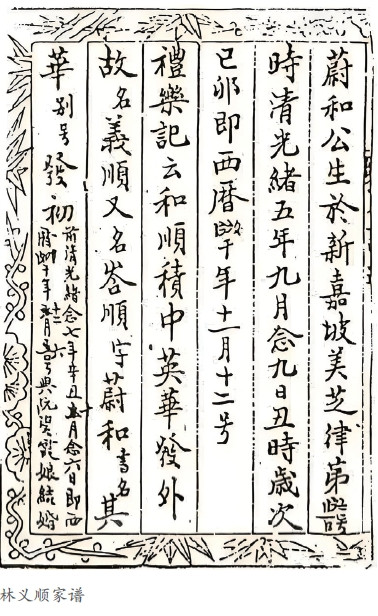 蔚和公生於新嘉坡美芝律第
時清光緒五年九月念九日丑時歲次
己卯即西曆年十一月十二号
禮樂記云和順積中英華發外
故名義順又名峇順字蔚和書名其
華别号發初
前清光緒念七年辛丑月念六日即西
曆年月号與阮娘結婚
林义顺家谱